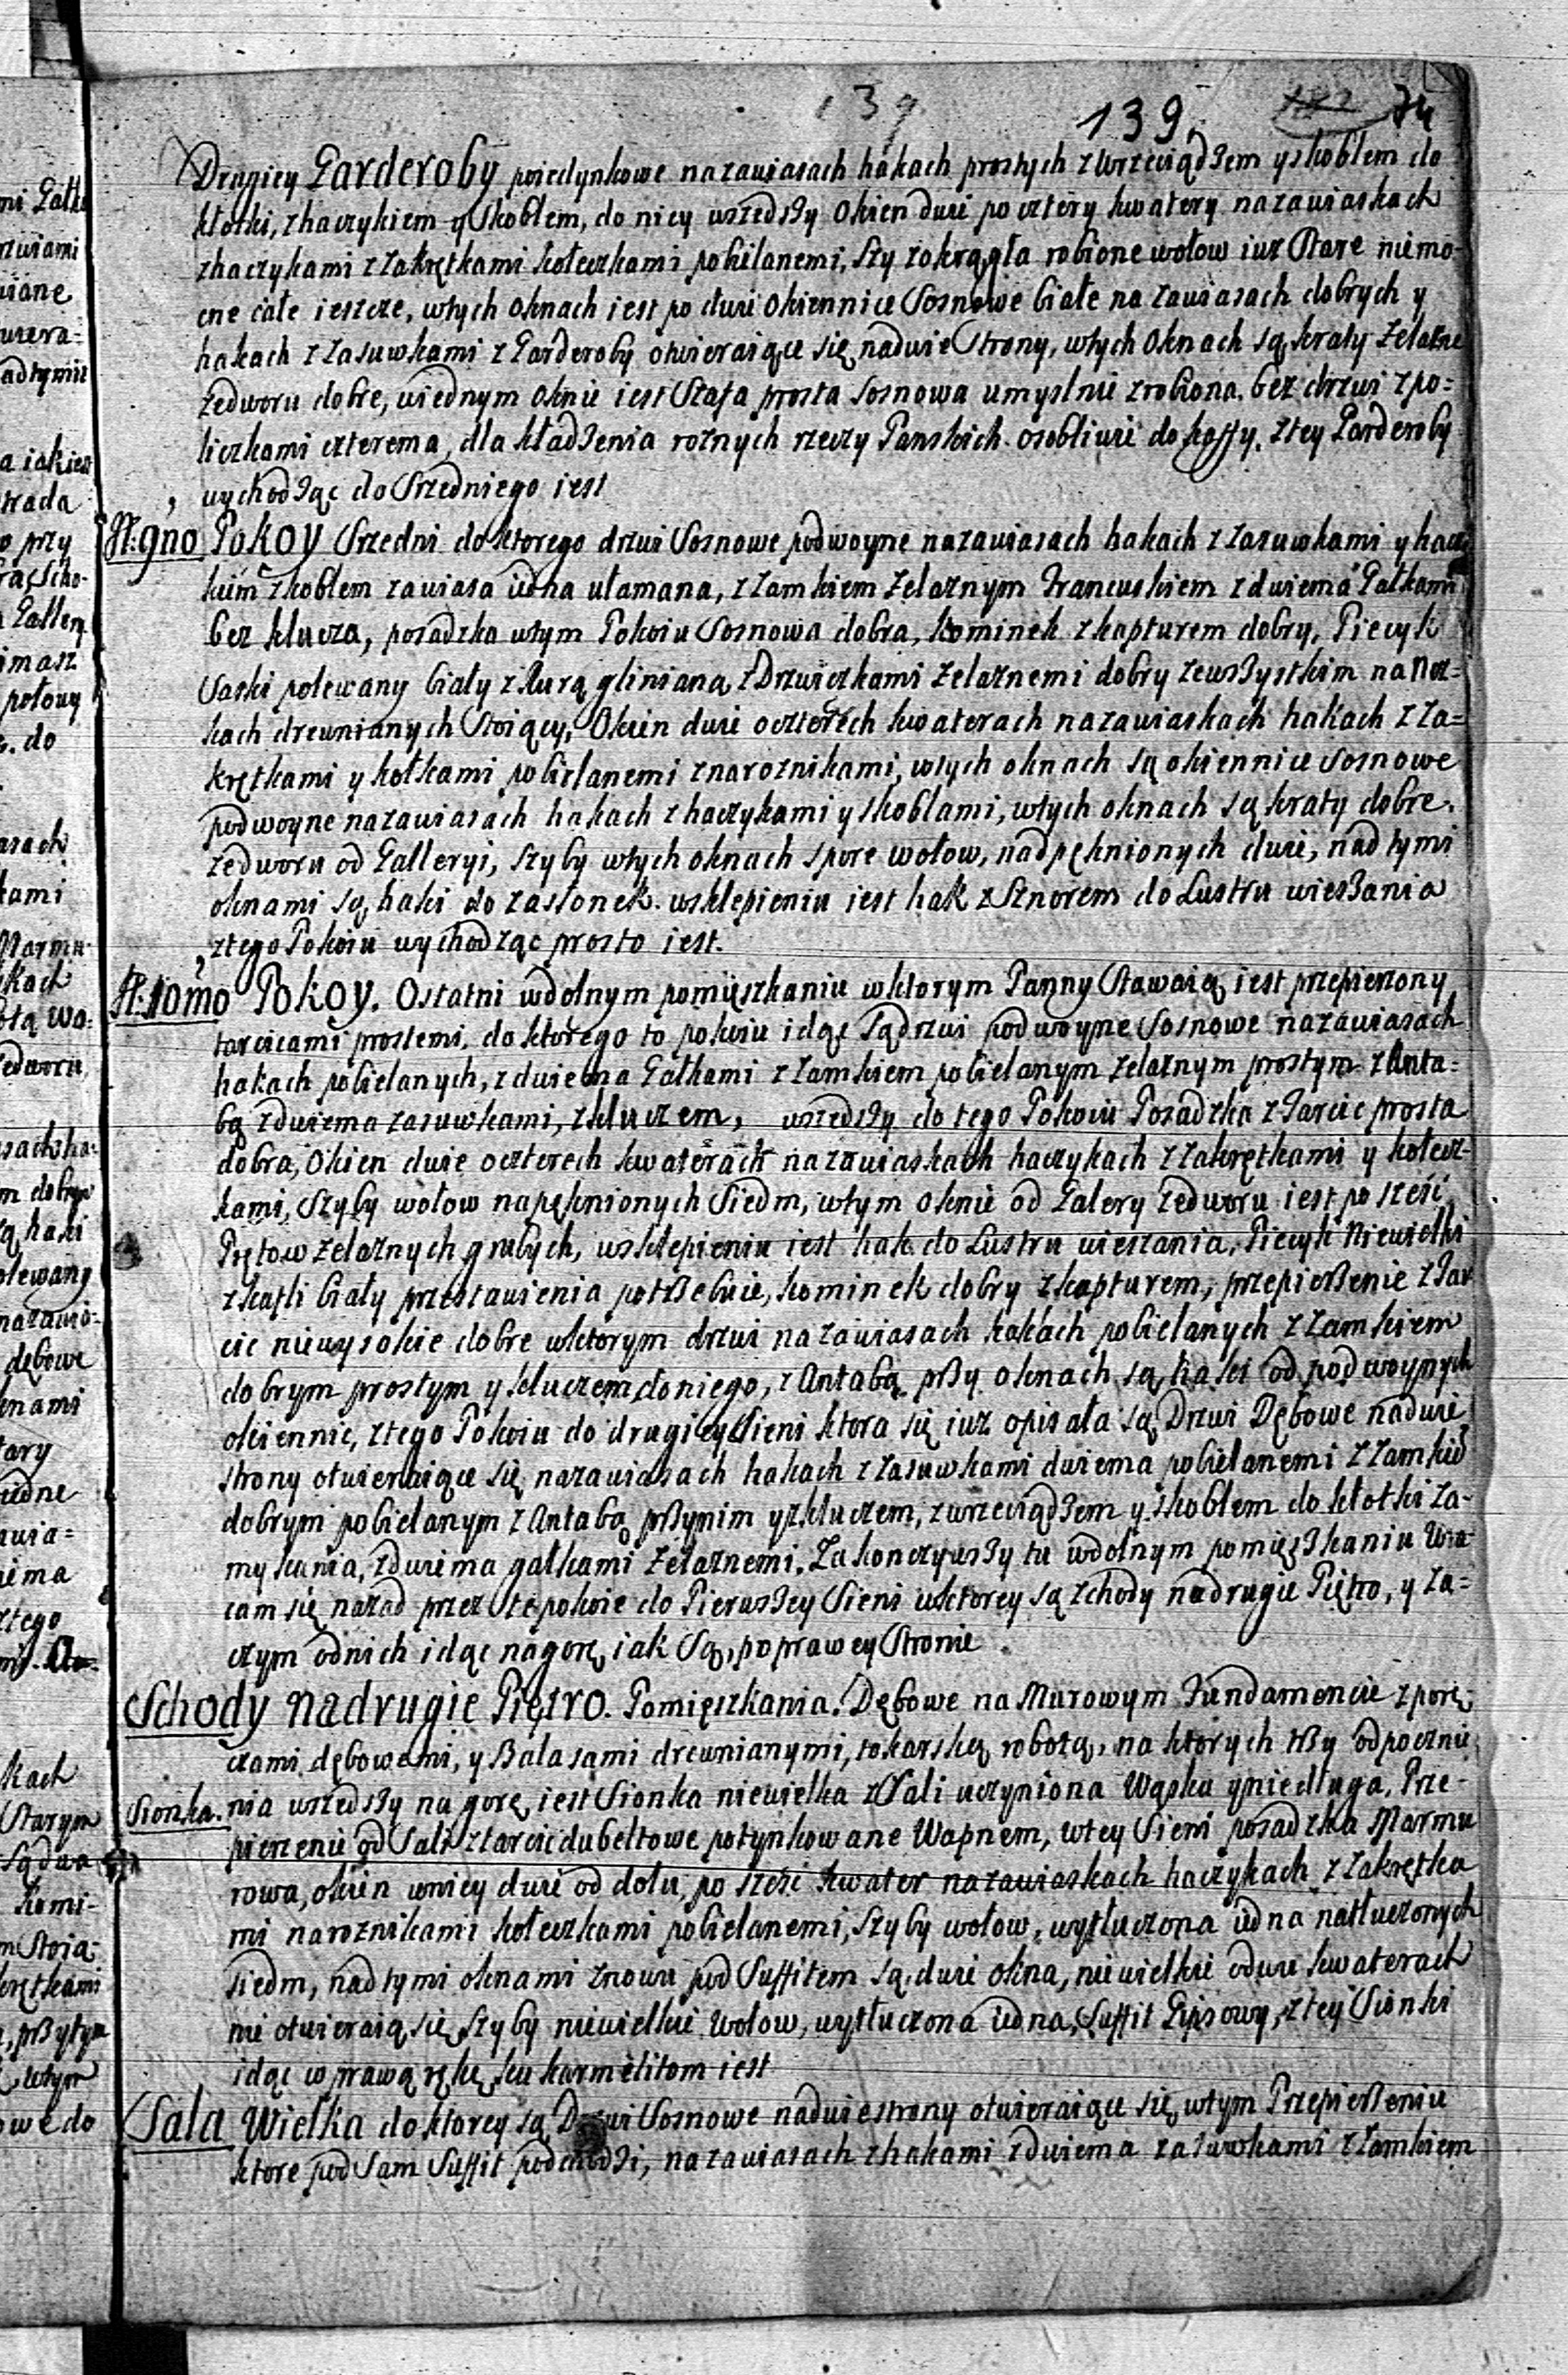 139
139.
74
Drugiey Garderoby poiedynkowe na zawiasach hakach prostych z wrzeciądzem y skoblem do
kłotki, z haczykiem y Skoblem, do niey wszedszy Okien dwie po cztery kwatery na zawiaskach
z haczykami z zakrętkami kołeczkami pobielanemi, szy zokrągła robione wołow iuż Stare niemo-
cne całe ieszcze, w tych oknach iest po dwie okiennice Sosnowe białe na zawiasach dobrych y
hakach z zasuwkami z Garderoby otwieraiące się na dwie Strony, w tych Oknach są kraty żelazne
ze dworu dobre, w iednym oknie iest Szafa prosta sosnowa umyslnie zrobiona. bez drzwi z po=
liczkami czterema, dla kładzenia roznych rzeczy Panskich osobliwie do kaffy. z tey Garderoby
wychodząc do Srzedniego iest
N: 9no Pokoy Srzedni do ktorego drzwi Sosnowe podwoyne na zawiasach hakach z zasuwkami y haczy
kiem skoblem zawiasa iedna ułamana, z zamkiem żelaznym Francuskiem z dwiema Gałkami
bez klucza, posadzka w tym Pokoiu Sosnowa dobra, kominek z kapturem dobry, Piecyk
Saski polewany biały z Rurą glinianą z Drzwiczkami żelaznemi dobry ze wszystkim na noz-
kach drewnianych Stoiący, Okien dwie o czterech kwaterach na zawiaskach hakach z za=
krętkami y kołkami pobielanemi z naroznikami, w tych oknach są okiennice sosnowe
podwoyne na zawiasach hakach z haczykami y skoblami, w tych oknach są kraty dobre.
ze dworu od Galleryi, szyby w tych oknach spore wołow, nadpęknionych dwie, nad tymi
oknami są haki do zasłonek. w sklepieniu iest hak z Sznorem do Lustru wieszania
z tego Pokoiu wychodząc prosto iest.
N: 10mo Pokoy. Ostatni w dolnym pomięszkaniu w ktorym Panny Stawaią iest przepierzony
tarcicami prostemi. do ktorego to pokoiu idąc są drzwi podwoyne Sosnowe na zawiasach
hakach pobielanych, z dwiema Gałkami z zamkiem pobielanym żelaznym prostym z Anta=
bą z dwiema zasuwkami, z kluczem, wszedszy do tego Pokoiu Posadzka z Tarcic prosta
dobra, Okien dwie o czterech kwaterach na zawiaskach haczykach z zakrętkami y kołecz-
kami, Szyby wołow napęknionych Siedm, w tym oknie od Galery ze dworu iest po sześć
Prętow żelaznych grubych, w sklepieniu iest hak do Lustru wieszania, Piecyk Niewielki
z kafli biały przestawienia potrzebuie, kominek dobry z kapturem, przepierzenie z Tar
cic niewysokie dobre w ktorym drzwi na zawiasach hakach pobielanych z zamkiem
dobrym prostym y kluczem do niego, z Antabą przy oknach są haki od podwoynych
okiennic, z tego Pokoiu do drugiey Sieni ktora się iuz opisała są Drzwi Dębowe na dwie
strony otwieraiące się na zawiasach hakach z zasuwkami dwiema pobielanemi z zamkiē
dobrym pobielanym z Antabą przy nim y z kluczem, z wrzeciądzem y skoblem do kłotki za-
mykania, z dwiema gałkami żelaznemi. Zakonczywszy tu w dolnym pomięszkaniu wra
cam się nazad przez te pokoie do Pierwszey Sieni w ktorey są schody na drugie Piętro, y za=
czym od nich idąc na gorę iak Są, po prawey Stronie.
Schody na drugie Piętro. Pomięszkania. Dębowe na Murowym Fundamencie z porę=
czami dębowemi, y Balasami drewnianymi, tokarską robotą, na ktorych trzy odpocznie
Sionka. nia wszedszy na gorę iest Sionka niewielka z Sali uczyniona Wąska y niedługa. Prze-
pierzenie od Sali z tarcic dubeltowe potynkowane Wapnem, w tey Sieni posadzka Marmu
rowa, okien w niey dwie od dołu, po sześć kwater na zawiaskach haczykach z zakrętka
mi naroznikami kołeczkami pobielanemi, Szyby wołow, wytłuczona iedna natłuczonych
siedm, nad tymi oknami znowu pod Suffitem są dwie okna, niewielkie o dwu kwaterach
nie otwieraią się, Szyby niewielkie Wołow, wytłuczona iedna, Suffit Gipsowy, z tey Sionki
idąc w prawą rękę ku karmelitom iest
Sala Wielka do ktorey są Drzwi Sosnowe na dwie strony otwieraiące się w tym Przepierzeniu
ktore pod Sam Suffit podchodzi, na zawiasach z hakami z dwiema zasuwkami z zamkiem